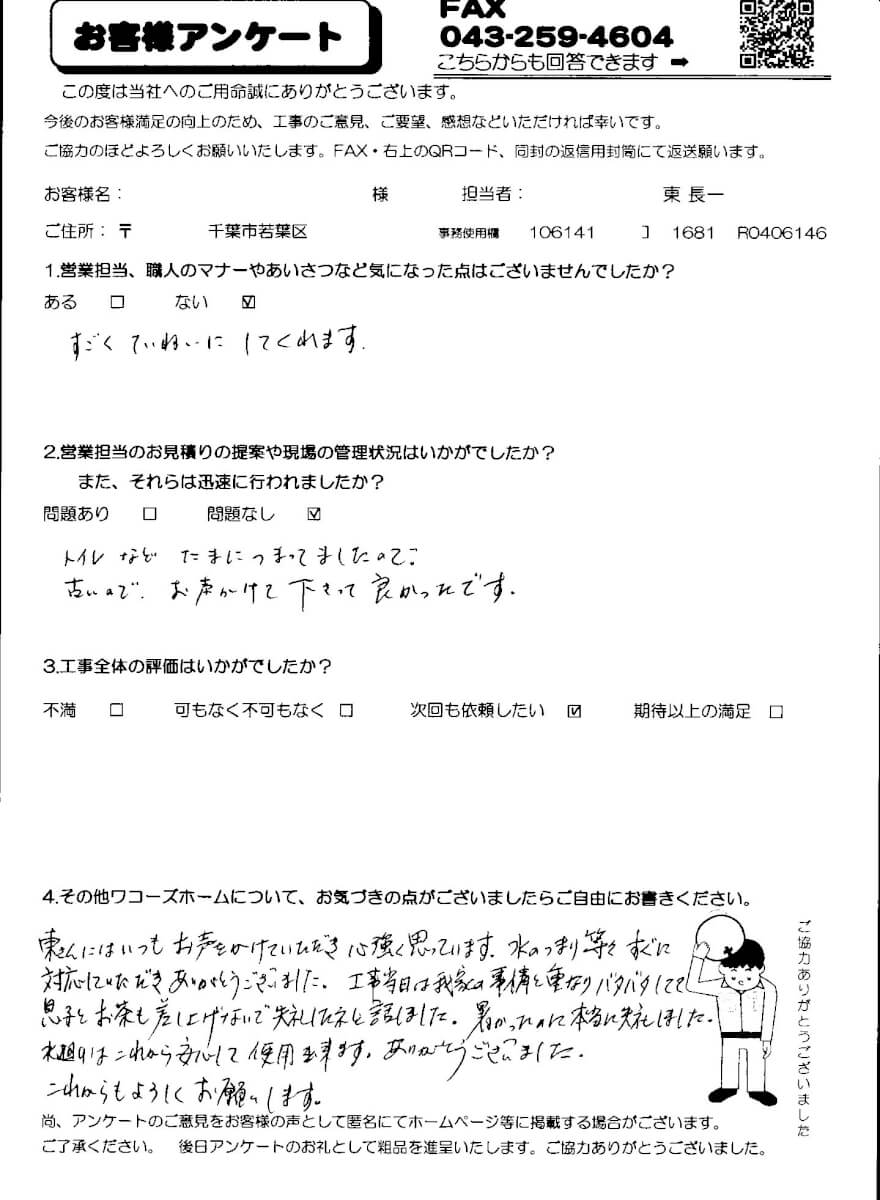 お客様アンケート
FAX
043-259-4604
こちらからも回答できます ➡
この度は当社へのご用命誠にありがとうございます。
今後のお客様満足の向上のため、工事のご意見、ご要望、感想などいただければ幸いです。
ご協力のほどよろしくお願いいたします。FAX・右上のQRコード、同封の返信用封筒にて返送願います。
お客様名： 様 担当者： 東 長一
ご住所：〒 千葉市若葉区 事務使用欄 106141 ] 1681 R0406146
1.営業担当、職人のマナーやあいさつなど気になった点はございませんでしたか？
ある □ ない ☑
すごくていねいにしてくれます.
2.営業担当のお見積りの提案や現場の管理状況はいかがでしたか？
また、それらは迅速に行われましたか？
問題あり □ 問題なし ☑
トイレなど たまにつまってましたので.
古いので. お声かけて下さって良かったです.
3.工事全体の評価はいかがでしたか？
不満 □ 可もなく不可もなく □ 次回も依頼したい ☑ 期待以上の満足 □
4.その他ワコーズホームについて、お気づきの点がございましたらご自由にお書きください。
東さんにはいつもお声をかけていただき心強く思っています. 水のつまり等々すぐに
対応していただきありがとうございました. 工事当日は我家の事情と重なりバタバタしてて
息子とお茶も差し上げないで失礼したネと話しました. 暑かったのに本当に失礼しました.
水廻りはこれから安心して使用出来ます. ありがとうございました.
これからもよろしくお願いします。
ご協力ありがとうございました
尚、アンケートのご意見をお客様の声として匿名にてホームページ等に掲載する場合がございます。
ご了承ください。 後日アンケートのお礼として粗品を進呈いたします。ご協力ありがとうございました。